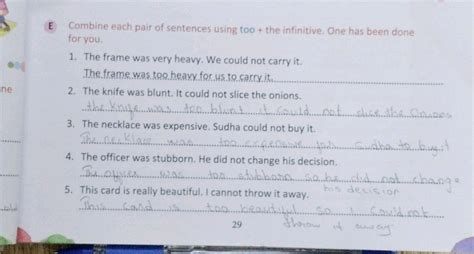 E Combine each pair of sentences using too + the infinitive. One has been done
for you.
1. The frame was very heavy. We could not carry it.
The frame was too heavy for us to carry it.
2. The knife was blunt. It could not slice the onions.
the knife was too blunt it could not slice the Onions
3. The necklace was expensive. Sudha could not buy it.
The necklace was too expensive for Sudha to buy it
4. The officer was stubborn. He did not change his decision.
The officer was too stubborn so he did not change
his decision
5. This card is really beautiful. I cannot throw it away.
This card is too beautiful so I could not
throw it away
29